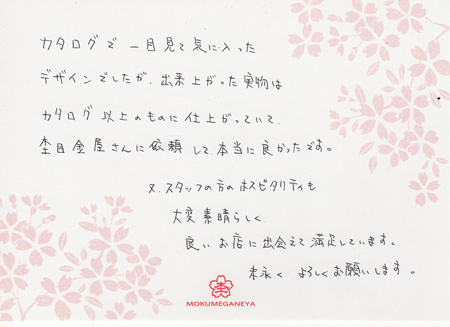 カタログで一目見て気に入った
デザインでしたが、出来上がった実物は
カタログ以上のものに仕上がっていて、
杢目金屋さんに依頼して本当に良かったです。
又、スタッフの方のホスピタリティも
大変素晴らしく
良いお店に出会えて満足しています。
末永くよろしくお願いします。
MOKUMEGANEYA